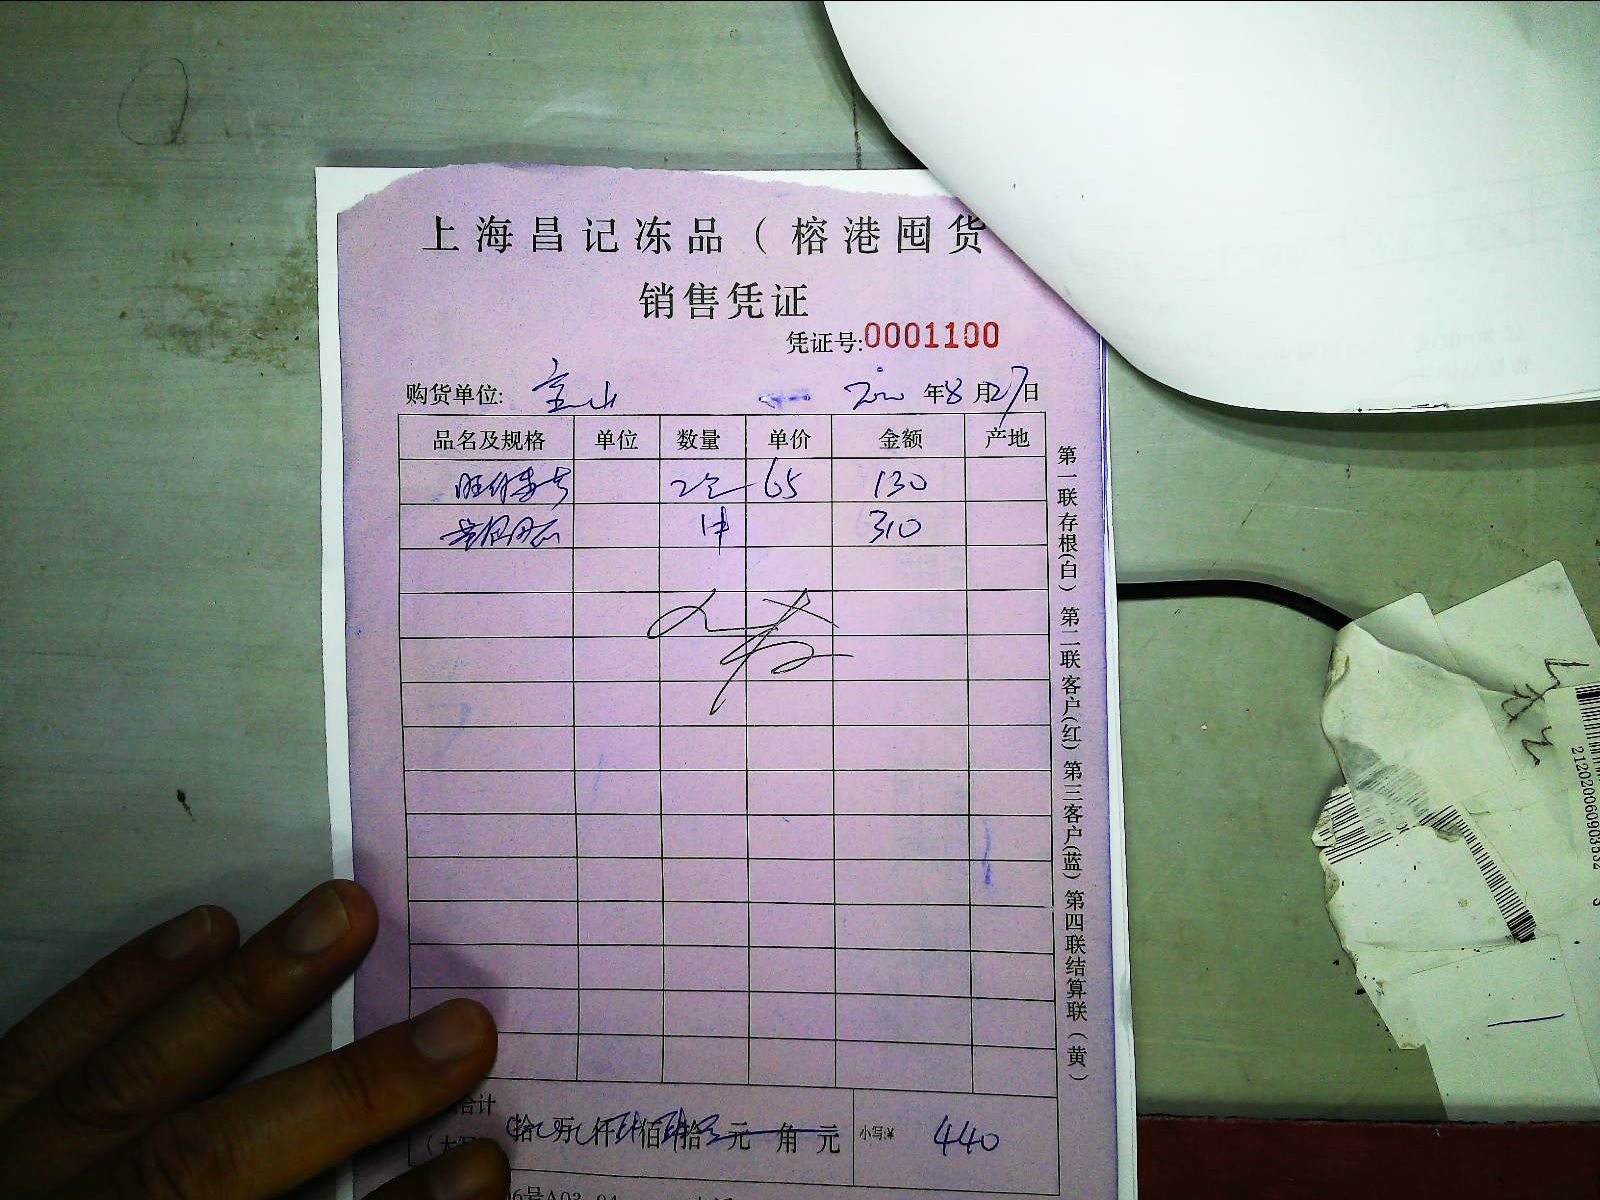 上海昌记冻品（榕港囤货
销售凭证
凭证号:0001100
购货单位: 宝山 2020年8月27日
品名及规格 单位 数量 单价 金额 产地
65 130
1件 310
第一联存根(白) 第二联客户(红) 第三客户(蓝) 第四联结算联(黄)
合计
拾 万 仟 佰 拾 元 角 元 小写:¥ 440
6号A03
212020060903532